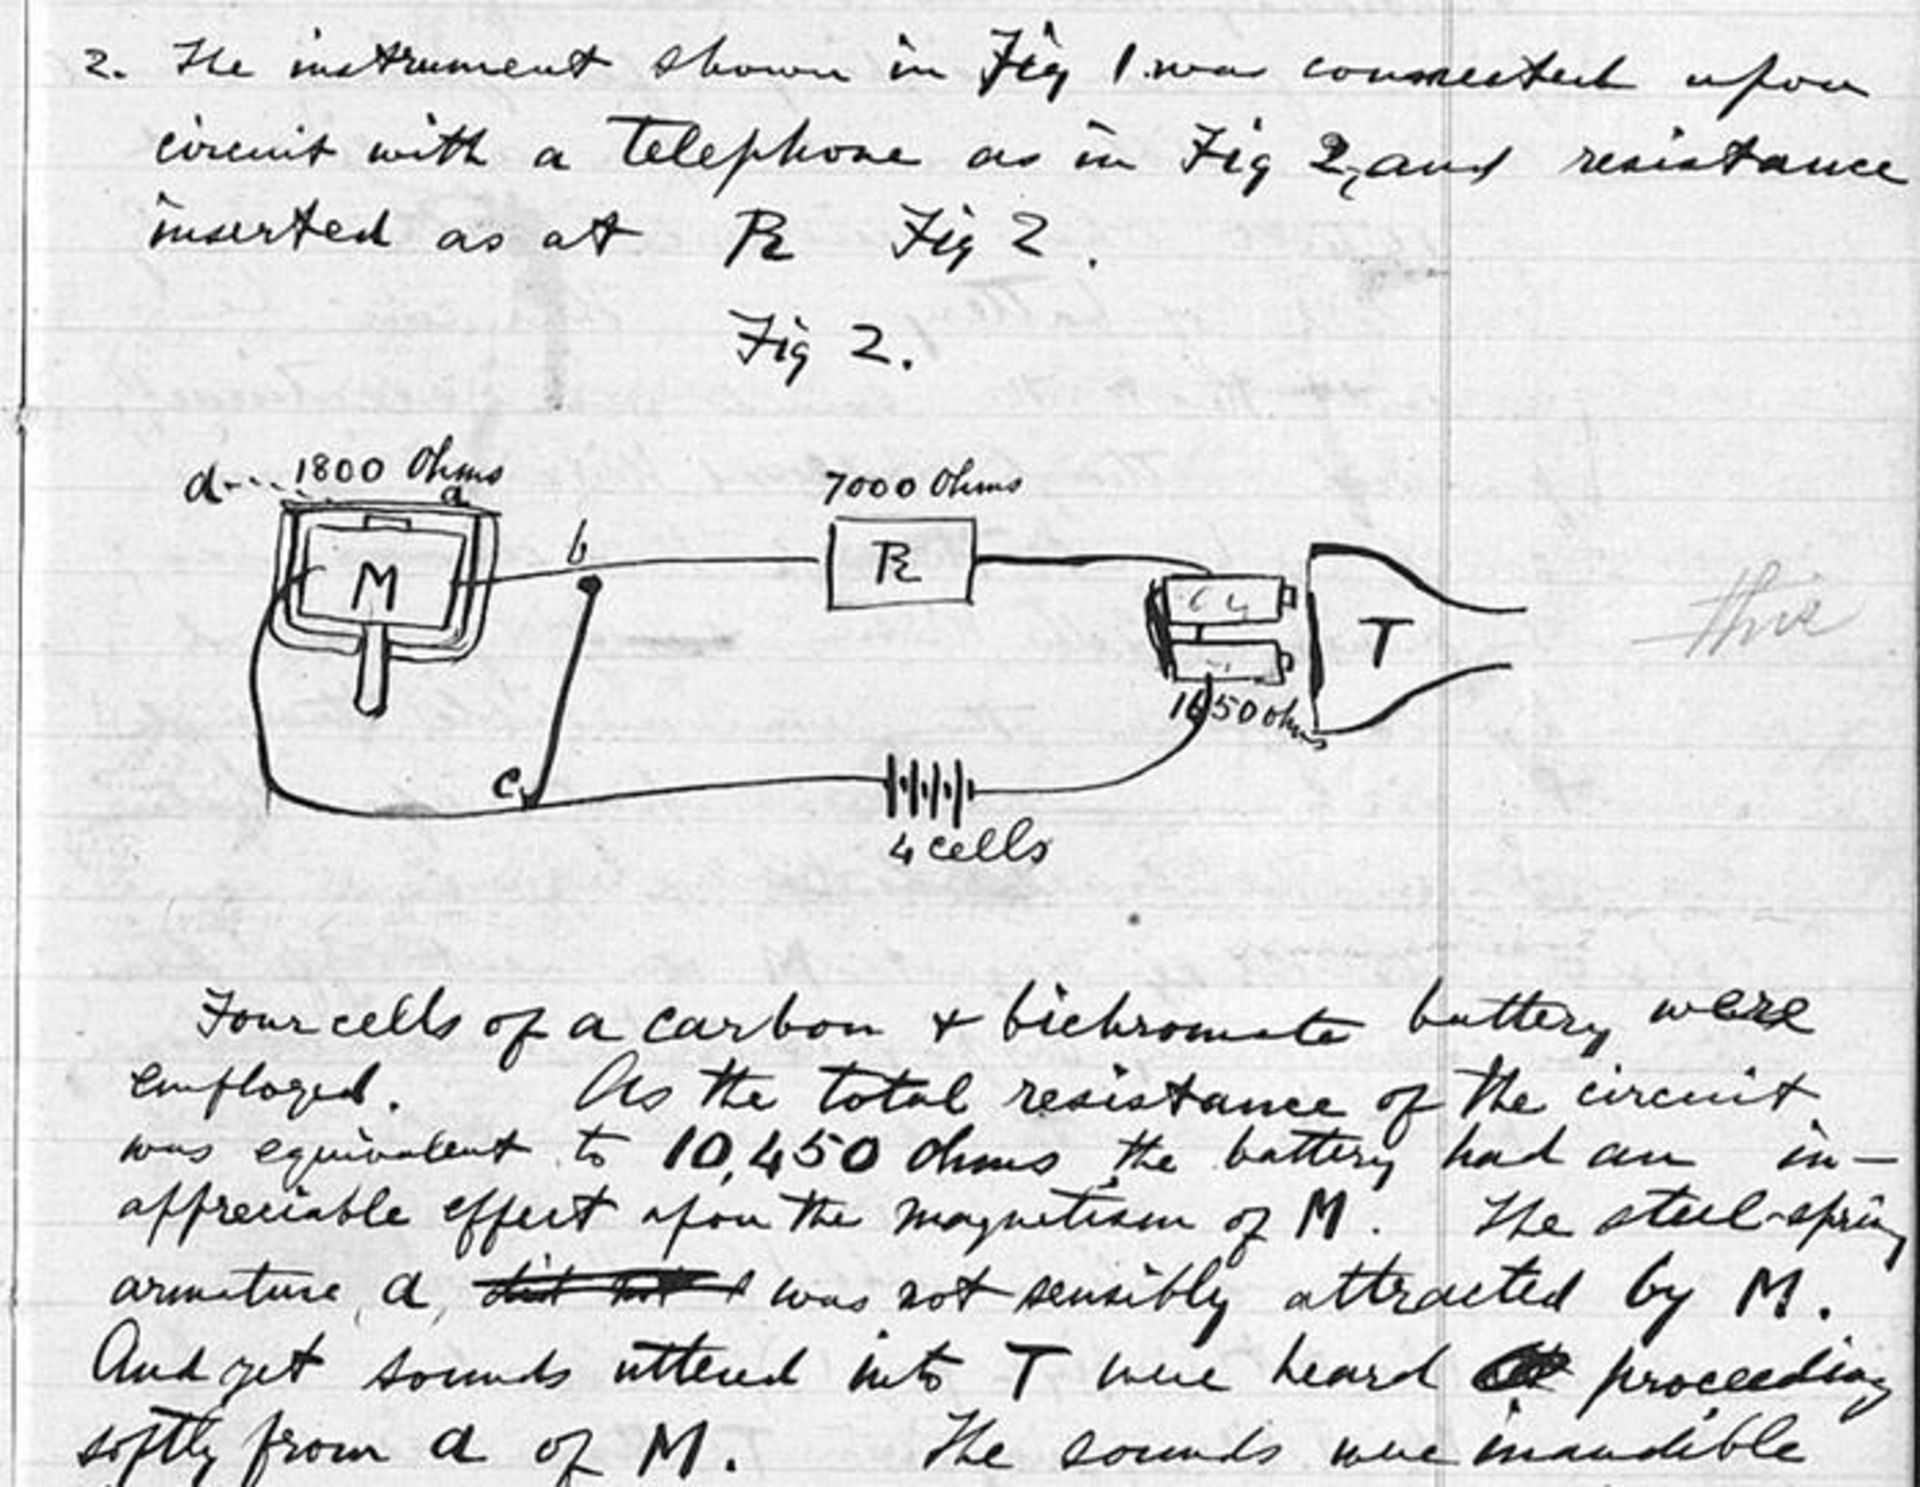 2. The instrument shown in Fig 1 was connected upon
circuit with a telephone as in Fig 2, and resistance
inserted as at R Fig 2.
Fig 2.
d 1800 Ohms
a
7000 Ohms
b
M
R
T
this
1650 ohms
c
4 cells
Four cells of a carbon + bichromate battery were
employed. As the total resistance of the circuit
was equivalent to 10,450 ohms, the battery had an in-
appreciable effect upon the magnetism of M. The steel-spring
armature, a, did not was not sensibly attracted by M.
And yet sounds uttered into T were heard proceeding
softly from a of M. The sounds were inaudible